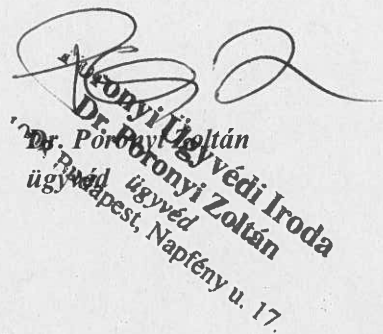 Poronyi Ügyvédi Iroda
Dr. Poronyi Zoltán
ügyvéd
Budapest, Napfény u. 17.
Dr. Poronyi Zoltán
ügyvéd